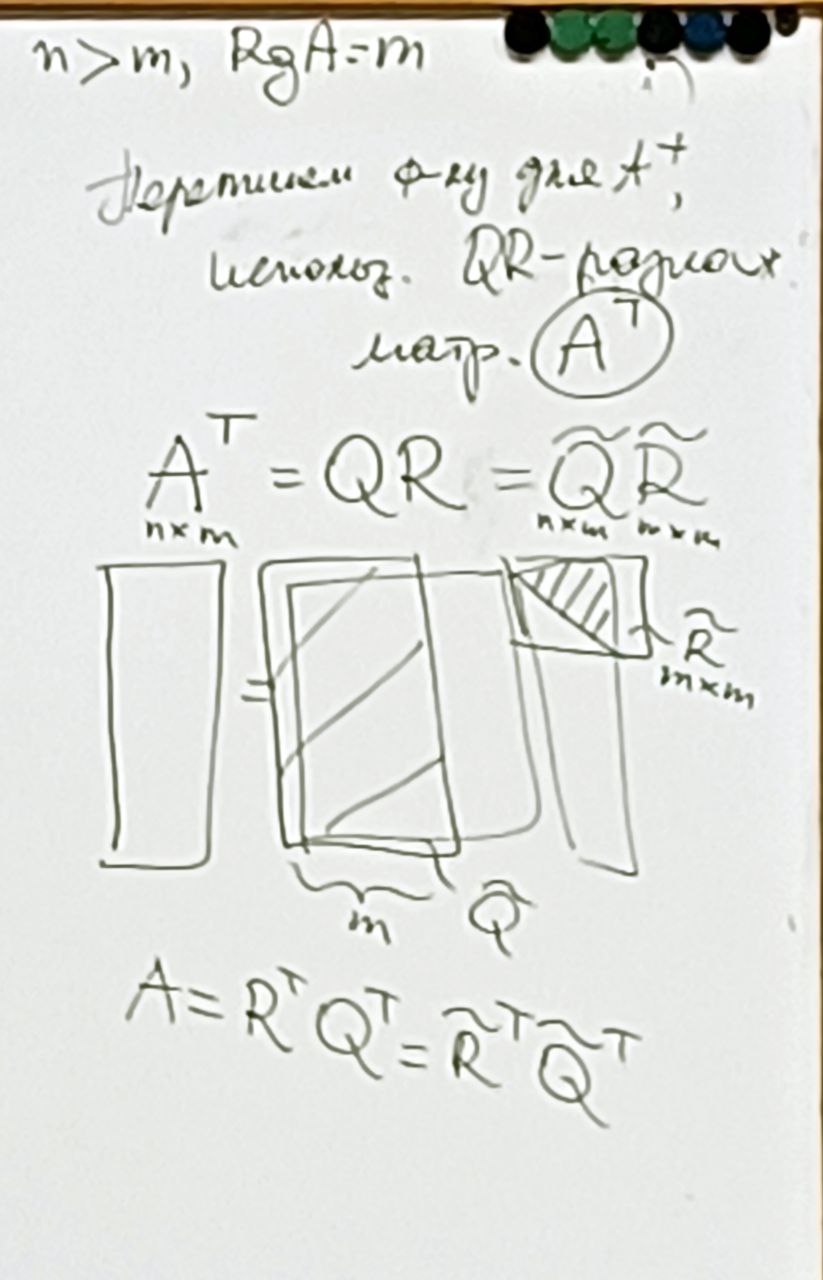 n>m, RgA=m
Перепишем ф-лу для A⁺,
использ. QR-разлож
матр. Aᵀ
Aᵀ = QR = Q̃ R̃
n×m n×m m×m
=
R̃
m×m
m Q̃
A = Rᵀ Qᵀ = R̃ᵀ Q̃ᵀ